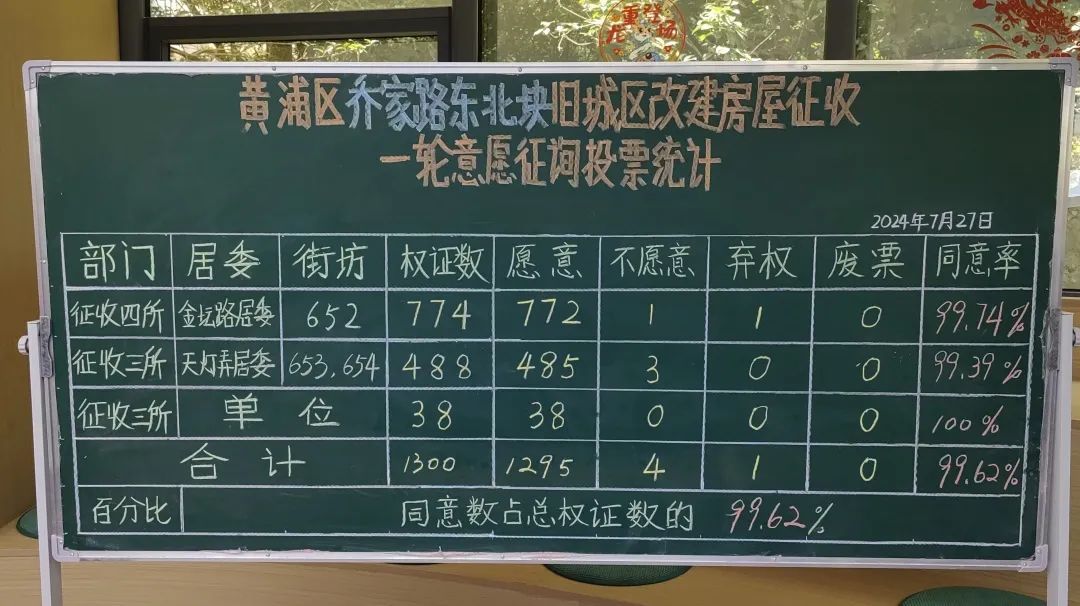 龙重登场
黄浦区乔家路东北块旧城区改建房屋征收
一轮意愿征询投票统计
2024年7月27日
部门 居委 街坊 权证数 愿意 不愿意 弃权 废票 同意率
征收四所 金坛路居委 652 774 772 1 1 0 99.74%
征收三所 天灯弄居委 653,654 488 485 3 0 0 99.39%
征收三所 单位 38 38 0 0 0 100%
合计 1300 1295 4 1 0 99.62%
百分比 同意数占总权证数的 99.62%